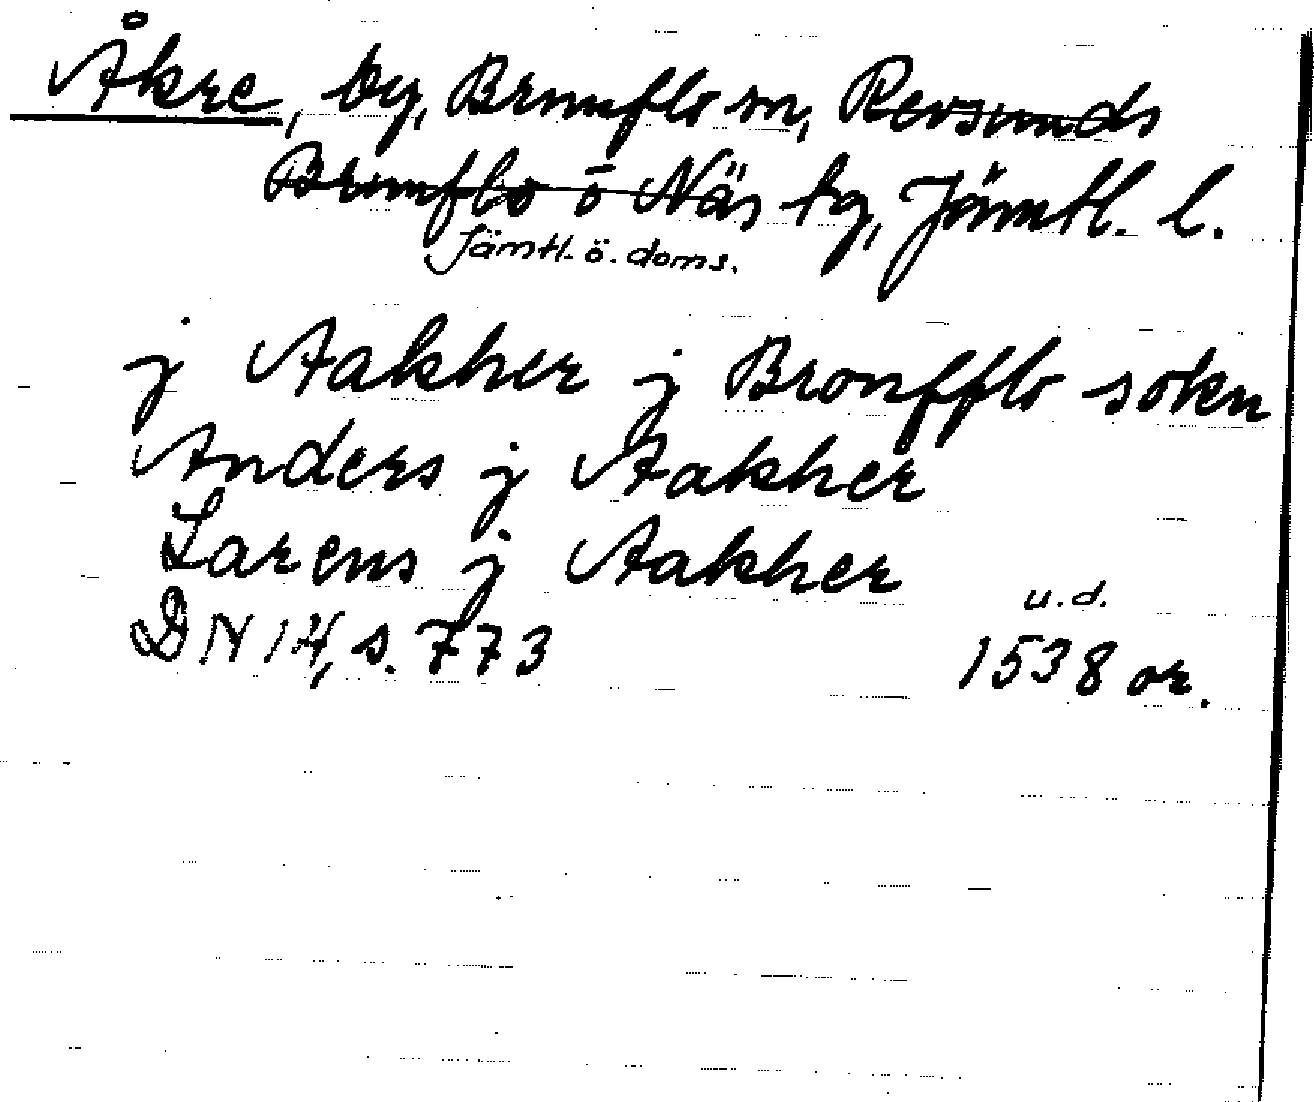 Åkre, by, Brunflo sn, Revsunds
Brunflo o Näs tg, Jämtl. l.
Jämtl. ö. doms.
j Aakher j Bronfflo sokn
Anders j Aakher
Larens j Aakher
u.d.
DN 14, s. 773 1538 or.